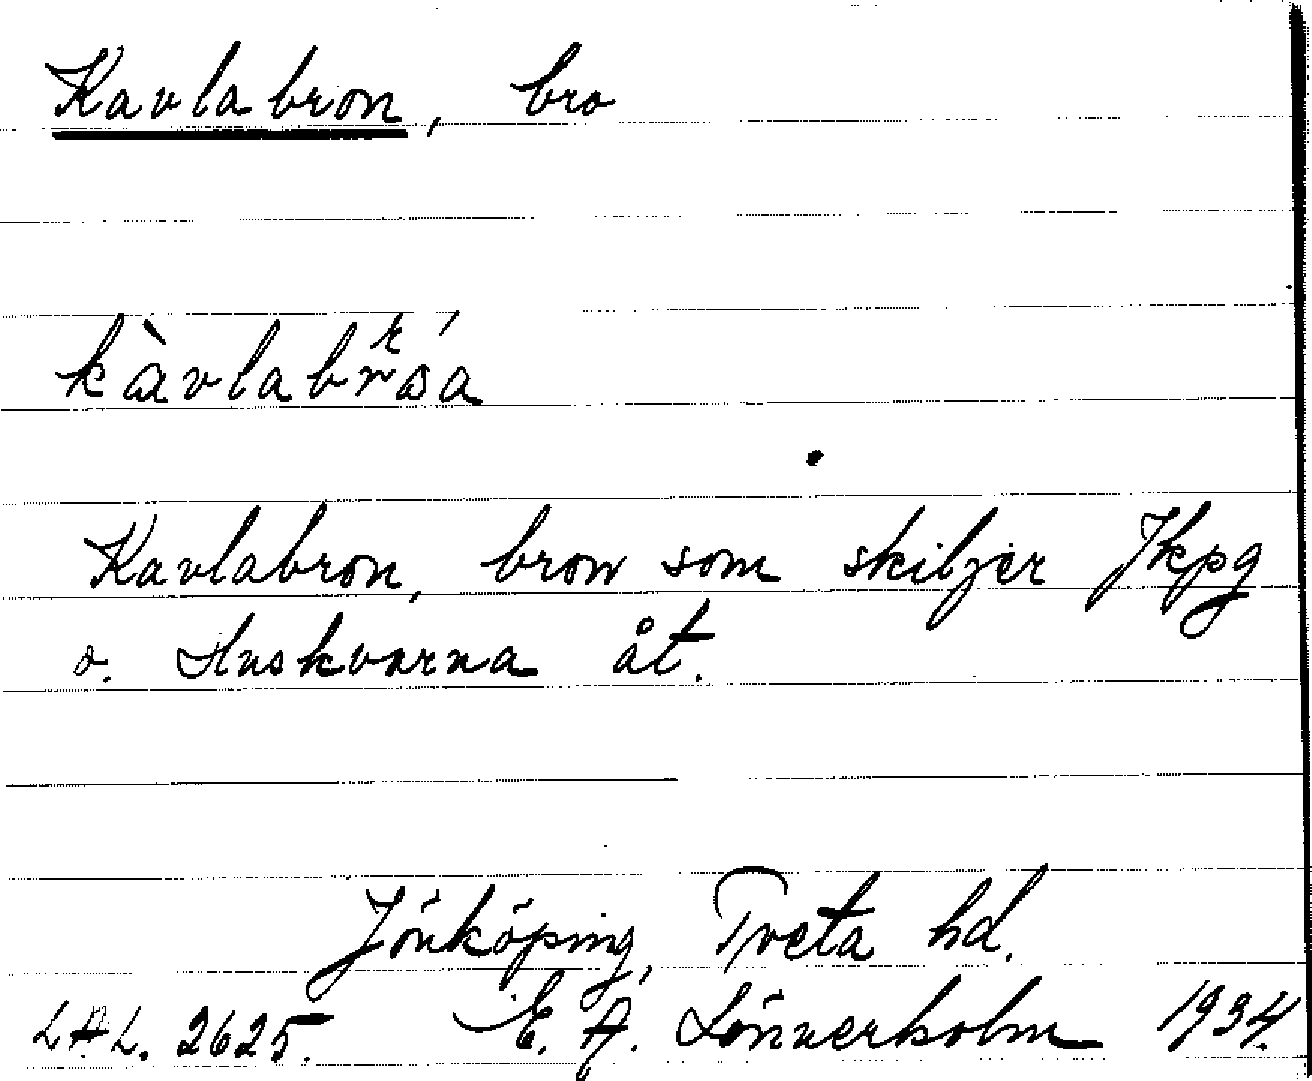 Kavlabron, bro
kàvlabrɷá
Kavlabron, bron som skiljer Jkpg
o. Huskvarna åt.
Jönköping, Tveta hd.
L.A.L. 2625. E. A. Lönnerholm 1934.